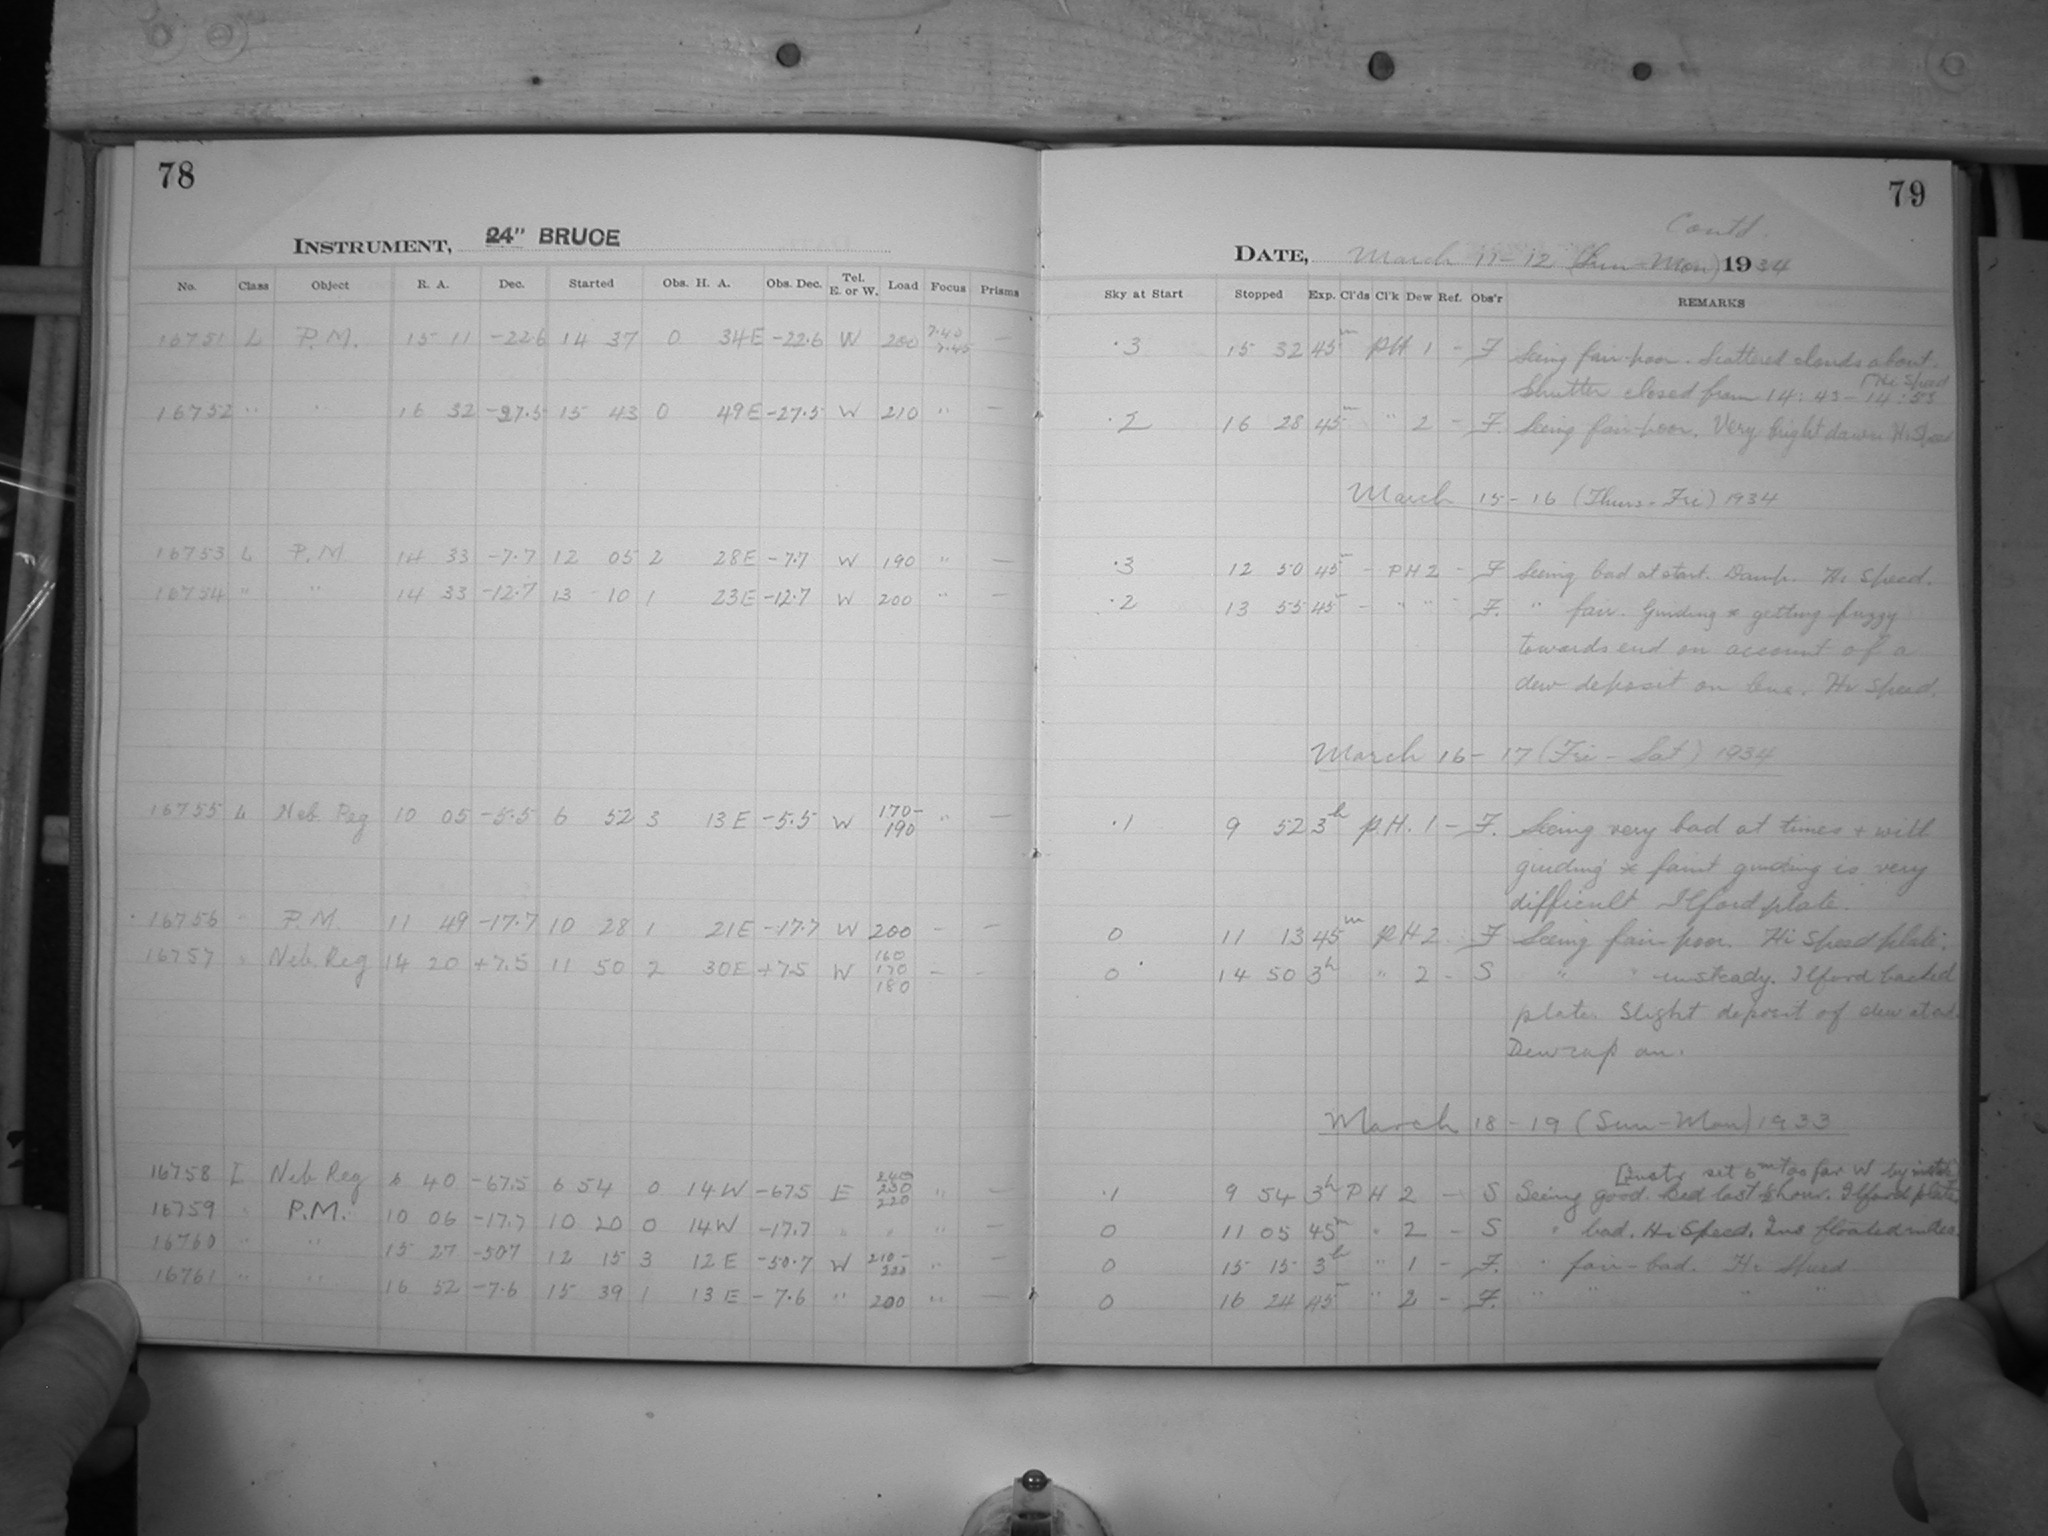 78
INSTRUMENT, 24" BRUCE
No. Class Object R. A. Dec. Started Obs. H. A. Obs. Dec. Tel. E. or W. Load Focus Prisms
16751 L P.M. 15 11 -22.6 14 37 0 34E -22.6 W 200 7.40 7.45 —
16752 " " 16 32 -27.5 15 43 0 49E -27.5 W 210 " —
16753 L P.M 14 33 -7.7 12 05 2 28E -7.7 W 190 " —
16754 " " 14 33 -12.7 13 10 1 23E -12.7 W 200 " —
16755 L Neb. Reg 10 05 -5.5 6 52 3 13E -5.5 W 170-190 " —
16756 " P.M. 11 49 -17.7 10 28 1 21E -17.7 W 200 — —
16757 " Neb. Reg 14 20 +7.5 11 50 2 30E +7.5 W 160 170 180 — —
16758 L Neb Reg 6 40 -67.5 6 54 0 14W -67.5 E 230 220 " —
16759 " P.M. 10 06 -17.7 10 20 0 14W -17.7 " " " —
16760 " " 15 27 -50.7 12 15 3 12E -50.7 W 210-220 " —
16761 " " 16 52 -7.6 15 39 1 13E -7.6 " 200 " —
79
Contd.
DATE, March 11-12 (Sun-Mon) 1934
Sky at Start Stopped Exp. Cl'ds Cl'k Dew Ref. Obs'r REMARKS
.3 15 32 45m PH 1 - F Seeing fair-poor. Scattered clouds about.
Shutter closed from 14:43-14:53 [Hi Speed
.2 16 28 45m " 2 - F. Seeing fair-poor. Very bright dawn Hi Speed
March 15-16 (Thurs-Fri) 1934
.3 12 50 45m - PH 2 - F Seeing bad at start. Damp. Hi Speed.
.2 13 55 45m - " " " F. " fair. Guiding * getting fuzzy
towards end on account of a
dew deposit on lens. Hi Speed.
March 16-17 (Fri-Sat) 1934
.1 9 52 3h P.H. 1 - F. Seeing very bad at times + with
guiding * faint guiding is very
difficult Ilford plate.
0 11 13 45m PH 2 F Seeing fair-poor. Hi Speed plate.
0 14 50 3h " 2 - S " " -unsteady. Ilford backed
plate. Slight deposit of dew at end.
Dewcap on.
March 18-19 (Sun-Mon) 1933
set 6m too far W by
.1 9 54 3h PH 2 - S Seeing good. Bad last ½ hour. Ilford plate
0 11 05 45m " 2 - S " bad. Hi Speed.
0 15 15 3h " 1 - F. " fair-bad. Hi Speed
0 16 24 45m " 2 - F. " " " "